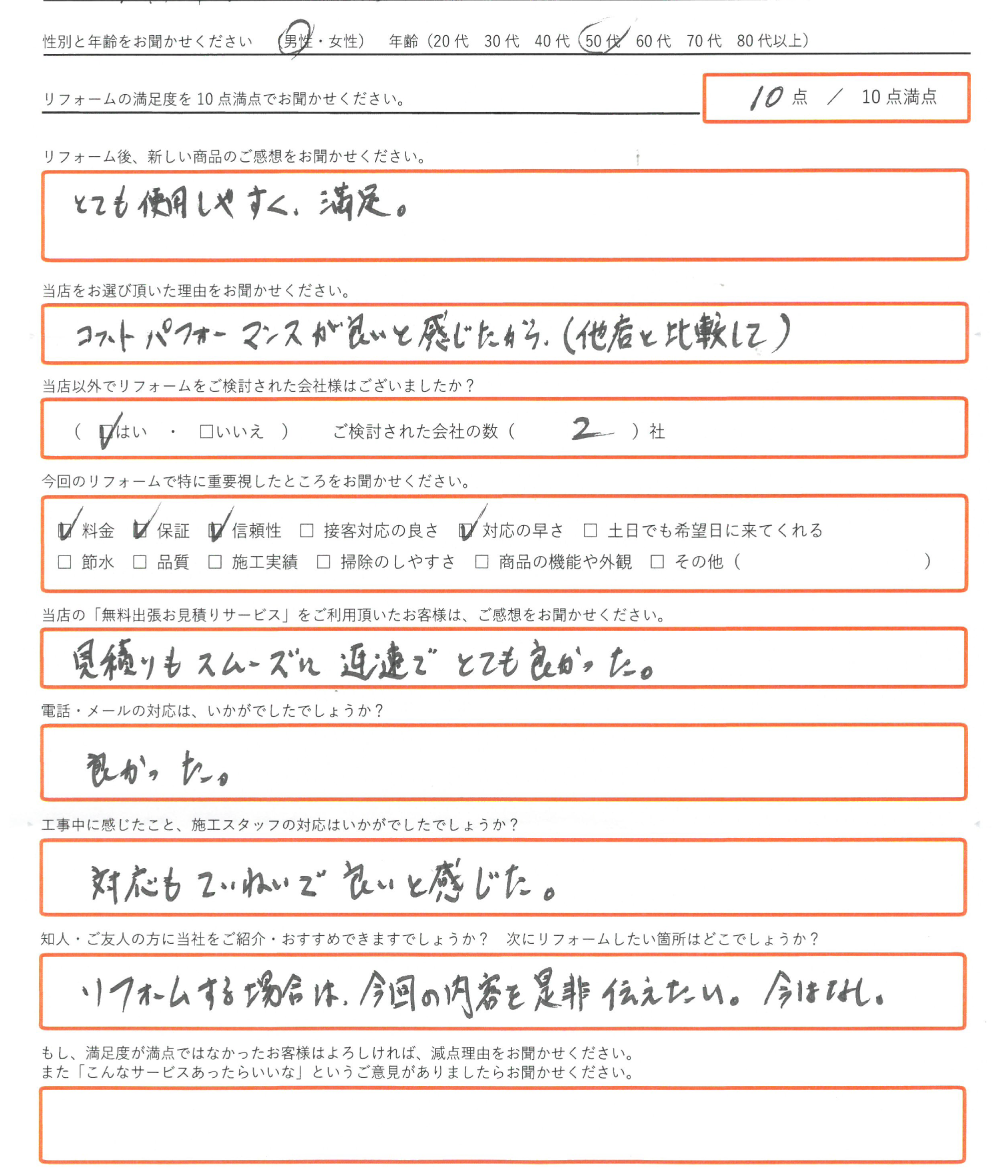 性別と年齢をお聞かせください （男性・女性） 年齢（20代 30代 40代 50代 60代 70代 80代以上）
リフォームの満足度を10点満点でお聞かせください。 10点 ／ 10点満点
リフォーム後、新しい商品のご感想をお聞かせください。
とても使用しやすく、満足。
当店をお選び頂いた理由をお聞かせください。
コストパフォーマンスが良いと感じたから、（他店と比較して）
当店以外でリフォームをご検討された会社様はございましたか？
（ ☑はい ・ □いいえ ） ご検討された会社の数（ 2 ）社
今回のリフォームで特に重要視したところをお聞かせください。
☑ 料金 ☑ 保証 ☑ 信頼性 □ 接客対応の良さ ☑ 対応の早さ □ 土日でも希望日に来てくれる
□ 節水 □ 品質 □ 施工実績 □ 掃除のしやすさ □ 商品の機能や外観 □ その他（ ）
当店の「無料出張お見積りサービス」をご利用頂いたお客様は、ご感想をお聞かせください。
見積りもスムーズに迅速でとても良かった。
電話・メールの対応は、いかがでしたでしょうか？
良かった。
工事中に感じたこと、施工スタッフの対応はいかがでしたでしょうか？
対応もていねいで良いと感じた。
知人・ご友人の方に当社をご紹介・おすすめできますでしょうか？ 次にリフォームしたい箇所はどこでしょうか？
リフォームする場合は、今回の内容を是非伝えたい。今はなし。
もし、満足度が満点ではなかったお客様はよろしければ、減点理由をお聞かせください。
また「こんなサービスあったらいいな」というご意見がありましたらお聞かせください。